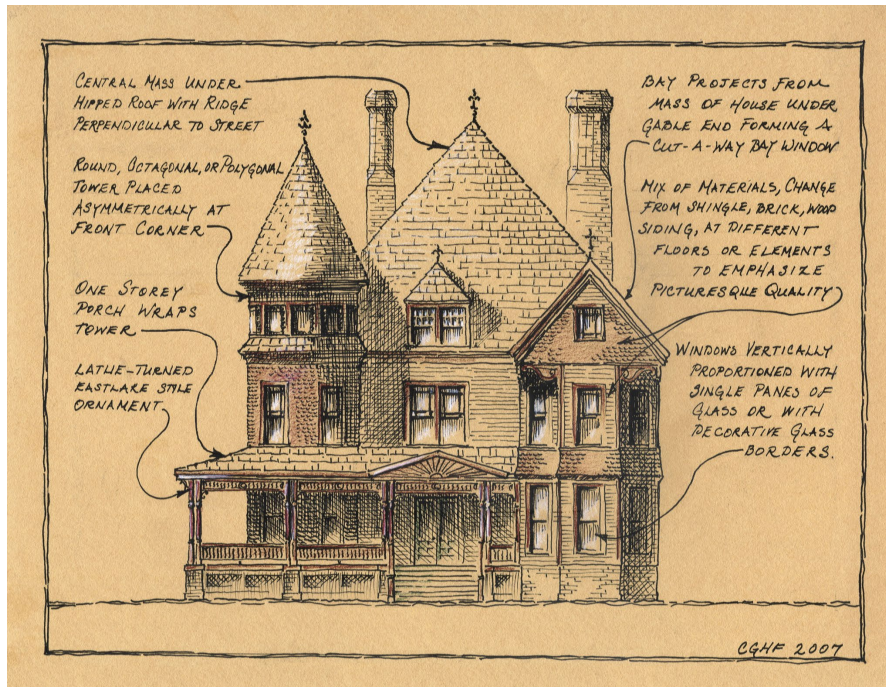 CENTRAL MASS UNDER
HIPPED ROOF WITH RIDGE
PERPENDICULAR TO STREET
ROUND, OCTAGONAL, OR POLYGONAL
TOWER PLACED
ASYMMETRICALLY AT
FRONT CORNER
ONE STOREY
PORCH WRAPS
TOWER
LATHE-TURNED
EASTLAKE STYLE
ORNAMENT
BAY PROJECTS FROM
MASS OF HOUSE UNDER
GABLE END FORMING A
CUT-A-WAY BAY WINDOW
MIX OF MATERIALS, CHANGE
FROM SHINGLE, BRICK, WOOD
SIDING, AT DIFFERENT
FLOORS OR ELEMENTS
TO EMPHASIZE
PICTURESQUE QUALITY
WINDOWS VERTICALLY
PROPORTIONED WITH
SINGLE PANES OF
GLASS OR WITH
DECORATIVE GLASS
BORDERS.
CGHF 2007